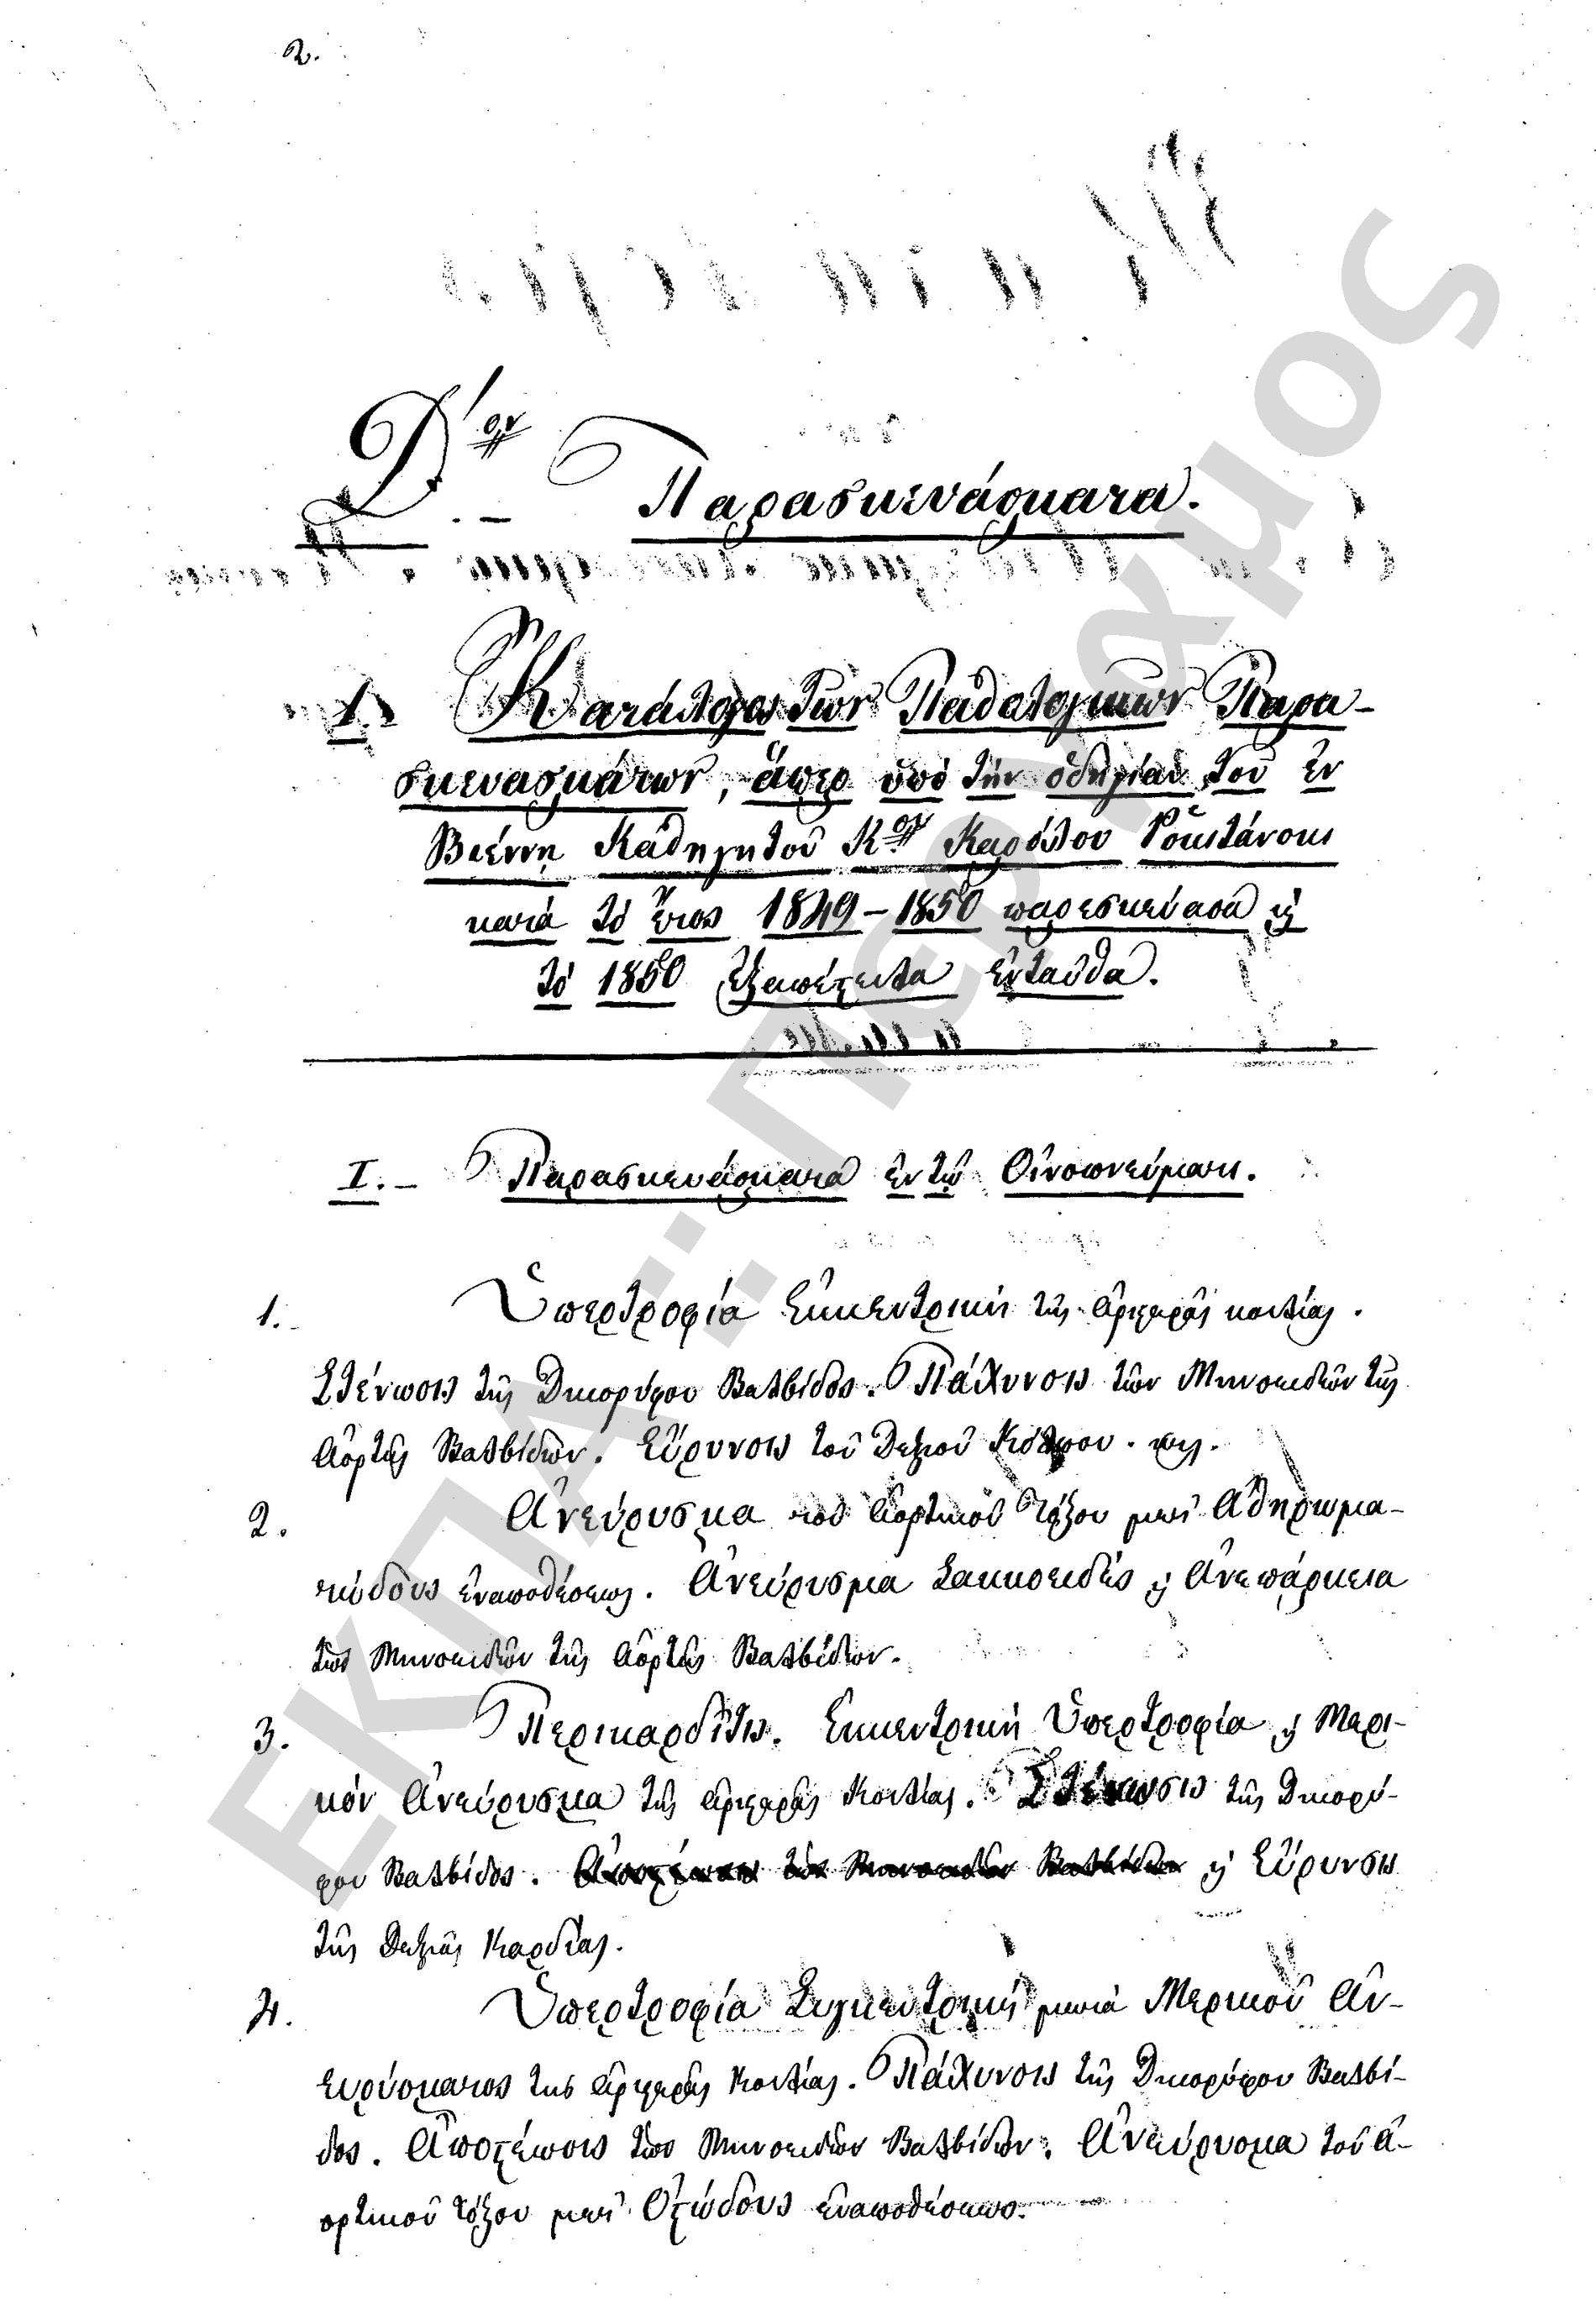 2.
Δ'ον . – Παρασκευάσματα.
1. Κατάλογος τῶν Παθολογικῶν Παρα-
σκευασμάτων, ἅπερ ὑπὸ τὴν ὁδηγίαν τοῦ ἐν
Βιέννῃ Καθηγητοῦ Κου Καρόλου Ροκιτάνσκι
κατὰ τὸ ἔτος 1849–1850 παρεσκεύασα ϗ
τὸ 1850 ἐξαπέστειλα ἐνταῦθα.
I. – Παρασκευάσματα ἐν τῷ Οἰνοπνεύματι.
1. Ὑπερτροφία Ἐκκεντρικὴ τῆς ἀριστερᾶς κοιλίας.
Στένωσις τῆς Δικορύφου Βαλβίδος. Πάχυνσις τῶν Μηνοειδῶν τῆς
Ἀορτῆς Βαλβίδων. Εὔρυνσις τοῦ Δεξιοῦ Κόλπου.
2. Ἀνεύρυσμα τοῦ Ἀορτικοῦ Τόξου μετ' Ἀθηρωμα-
τώδους ἐναποθέσεως. Ἀνεύρυσμα Σακκοειδὲς ϗ Ἀνεπάρκεια
τῶν Μηνοειδῶν τῆς Ἀορτῆς Βαλβίδων.
3. Περικαρδῖτις. Ἐκκεντρικὴ Ὑπερτροφία ϗ Μερι-
κὸν Ἀνεύρυσμα τῆς ἀριστερᾶς Κοιλίας. Στένωσις τῆς Δικορύ-
φου Βαλβίδος. ϗ Εὔρυνσις
τῆς Δεξιᾶς Καρδίας.
4. Ὑπερτροφία Συγκεντρικὴ μετὰ Μερικοῦ Ἀν-
ευρύσματος τῆς ἀριστερᾶς Κοιλίας. Πάχυνσις τῆς Δικορύφου Βαλβί-
δος. Ἀποστέωσις τῶν Μηνοειδῶν Βαλβίδων. Ἀνεύρυσμα τοῦ Ἀ-
ορτικοῦ τόξου μετ' Ὀστώδους ἐναποθέσεως.
ΕΚΠΑ: Πέργαμος